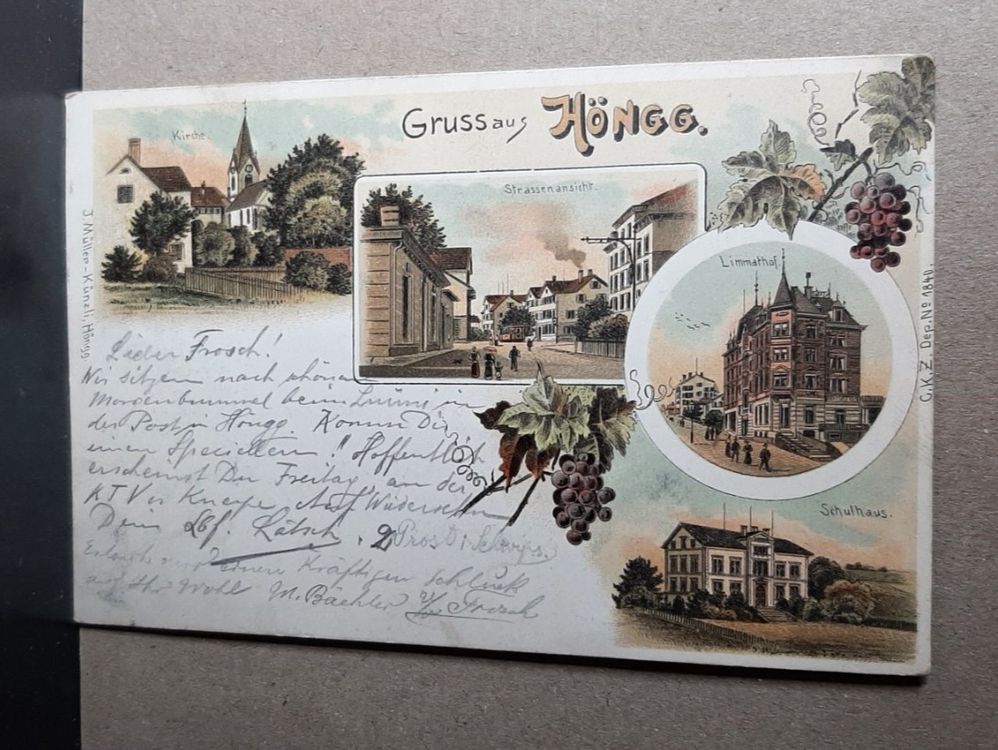 Gruss aus Höngg.
Kirche.
Strassenansicht.
Limmathof.
Schulhaus.
J. Müller-Künzli, Höngg.
C.K.Z. Dep. No 1840.
Lieber Frosch!
Wir sitzen nach schönem
Morgenbummel beim in
der Post in Höngg. Komm Dir
einen Speciellen!! Hoffentlich
erscheinst Du Freitag an der
KTVer Kneipe Auf Wiedersehn
Dein Lbf. Lätsch.
Prosit
einen kräftigen Schluck
auf Ihr Wohl M. Bächler v/o Frosch